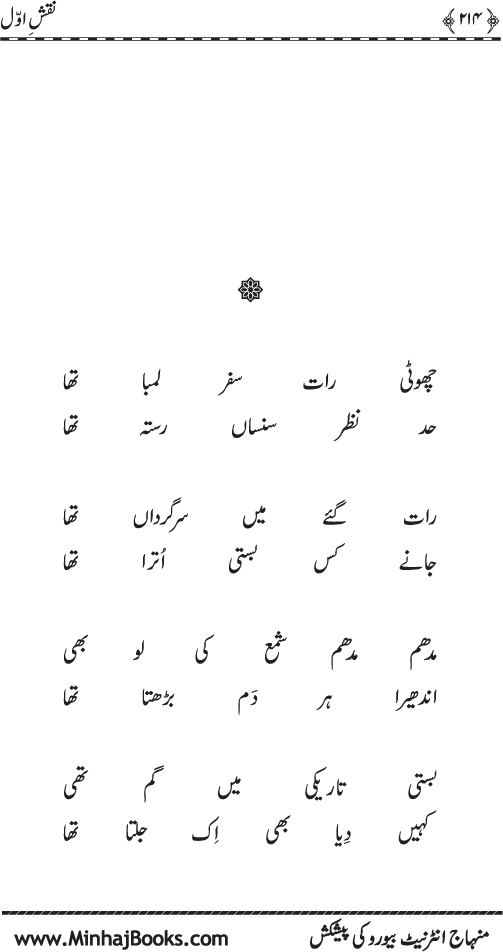 ﴿۲۱۴﴾ نقشِ اوّل
چھوٹی رات سفر لمبا تھا
حد نظر سنساں رستہ تھا
رات گئے میں سرگرداں تھا
جانے کس بستی اُترا تھا
مدھم مدھم شمع کی لو بھی
اندھیرا ہر دَم بڑھتا تھا
بستی تاریکی میں گم تھی
کہیں دِیا بھی اِک جلتا تھا
منہاج انٹرنیٹ بیورو کی پیشکش www.MinhajBooks.com